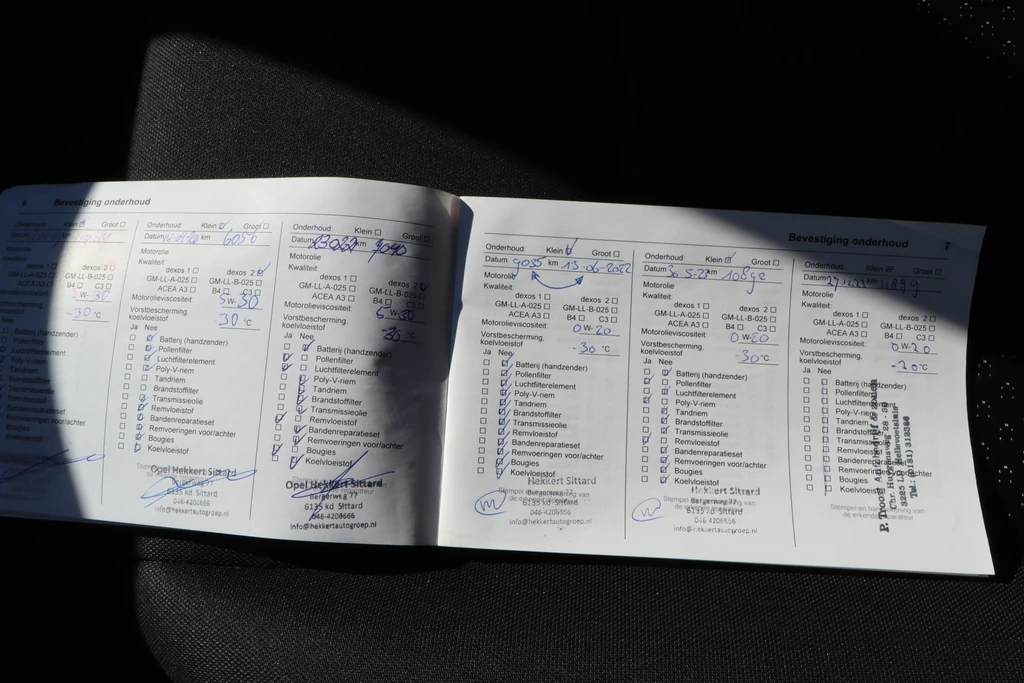 6 Bevestiging onderhoud
Onderhoud: Klein Groot
Datum
Motorolie
Kwaliteit:
dexos 1 dexos 2
GM-LL-A-025 GM-LL-B-025
ACEA A3 B4 C3
-30 °C
Nee
Batterij (handzender)
Pollenfilter
Luchtfilterelement
Poly-V-riem
Tandriem
Brandstoffilter
Transmissieolie
Remvloeistof
Bandenreparatieset
Remvoeringen voor/achter
Bougies
Koelvloeistof
Onderhoud: Klein Groot
Datum km 6050
Motorolie
Kwaliteit:
dexos 1 dexos 2
GM-LL-A-025 GM-LL-B-025
ACEA A3 B4 C3
Motorolieviscositeit: 5W-30
Vorstbescherming,
koelvloeistof -30 °C
Ja Nee
Batterij (handzender)
Pollenfilter
Luchtfilterelement
Poly-V-riem
Tandriem
Brandstoffilter
Transmissieolie
Remvloeistof
Bandenreparatieset
Remvoeringen voor/achter
Bougies
Koelvloeistof
Opel Hekkert Sittard
Bergerweg 77
6135 kd Sittard
046-4206666
info@hekkertautogroep.nl
Onderhoud: Klein Groot
Datum km
Motorolie
Kwaliteit:
dexos 1 dexos 2
GM-LL-A-025 GM-LL-B-025
ACEA A3 B4 C3
Motorolieviscositeit:
Vorstbescherming,
koelvloeistof -30 °C
Ja Nee
Batterij (handzender)
Pollenfilter
Luchtfilterelement
Poly-V-riem
Tandriem
Brandstoffilter
Transmissieolie
Remvloeistof
Bandenreparatieset
Remvoeringen voor/achter
Bougies
Koelvloeistof
Opel Hekkert Sittard
Bergerweg 77
6135 kd Sittard
046-4206666
info@hekkertautogroep.nl
Bevestiging onderhoud 7
Onderhoud: Klein Groot
Datum 9035 km 13-06-2022
Motorolie
Kwaliteit:
dexos 1 dexos 2
GM-LL-A-025 GM-LL-B-025
ACEA A3 B4 C3
Motorolieviscositeit: 0W-20
Vorstbescherming,
koelvloeistof -30 °C
Ja Nee
Batterij (handzender)
Pollenfilter
Luchtfilterelement
Poly-V-riem
Tandriem
Brandstoffilter
Transmissieolie
Remvloeistof
Bandenreparatieset
Remvoeringen voor/achter
Bougies
Koelvloeistof
Hekkert Sittard
Bergerweg 77
6135 kd Sittard
046-4206666
info@hekkertautogroep.nl
Onderhoud: Klein Groot
Datum 30-5-23 km 10892
Motorolie
Kwaliteit:
dexos 1 dexos 2
GM-LL-A-025 GM-LL-B-025
ACEA A3 B4 C3
Motorolieviscositeit: 0W-20
Vorstbescherming,
koelvloeistof -30 °C
Ja Nee
Batterij (handzender)
Pollenfilter
Luchtfilterelement
Poly-V-riem
Tandriem
Brandstoffilter
Transmissieolie
Remvloeistof
Bandenreparatieset
Remvoeringen voor/achter
Bougies
Koelvloeistof
Hekkert Sittard
Bergerweg 77
6135 kd Sittard
046-4206666
info@hekkertautogroep.nl
Onderhoud: Klein Groot
Datum km 11899
Motorolie
Kwaliteit:
dexos 1 dexos 2
GM-LL-A-025 GM-LL-B-025
ACEA A3 B4 C3
Motorolieviscositeit: 0W20
Vorstbescherming,
koelvloeistof °C
Ja Nee
Batterij (handzender)
Pollenfilter
Luchtfilterelement
Poly-V-riem
Tandriem
Brandstoffilter
Transmissieolie
Remvloeistof
Bandenreparatieset
Remvoeringen voor/achter
Bougies
Koelvloeistof
Stempel en handtekening van
de erkende reparateur
P. Troost Autobedrijf & zonen
Chr. Huygensweg 28 - 30
3225 LD Hellevoetsluis
Tel.: (0181) 312366